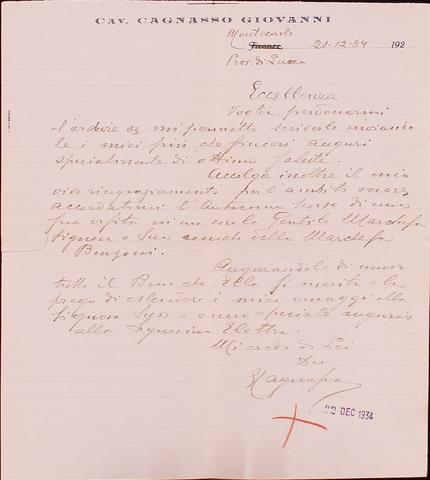 CAV. CAGNASSO GIOVANNI
Montecarlo
Firenze 21-12-34 192
Prov. di Lucca
Eccellenza.
Voglia perdonarmi
l'ardire se mi permetto scriverle inviando
le i miei più che sinceri auguri
specialmente di ottima salute.
Accolga inoltre il mio
vivo ringraziamento per l'ambito onore
accordatomi l'Autunno scorso di una
sua visita con la Gentile Marchesa
Signora e Suo della Marchesa
Benzoni.
Augurandole di nuovo
tutto il Bene che Ella si merita e la
prego di estendere i miei omaggi alla
Signora Sua e uno speciale augurio
alla Signorina Elettra.
Mi creda di Lei
Dev
Cagnasso
22 DEC 1934